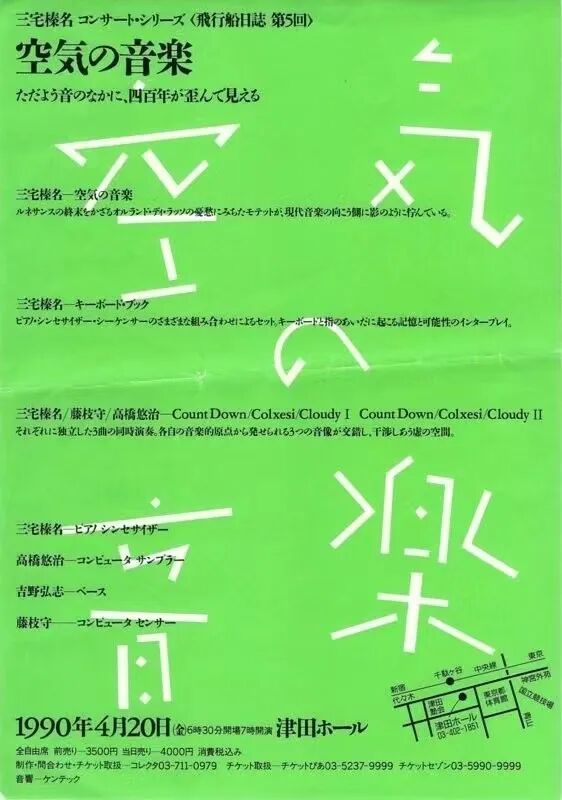 三宅榛名 コンサート・シリーズ〈飛行船日誌 第5回〉
空気の音楽
ただよう音のなかに、四百年が歪んで見える
空気の音楽
三宅榛名―空気の音楽
ルネサンスの終末をかざるオルランド・ディ・ラッソの憂愁にみちたモテットが、現代音楽の向こう側に影のように佇んでいる。
三宅榛名―キーボード・ブック
ピアノ・シンセサイザー・シーケンサーのさまざまな組み合わせによるセット。キーボードと指のあいだに起こる記憶と可能性のインタープレイ。
三宅榛名/藤枝守/高橋悠治―Count Down/Colxesi/Cloudy I Count Down/Colxesi/Cloudy II
それぞれに独立した3曲の同時演奏。各自の音楽的原点から発せられる3つの音像が交錯し、干渉しあう虚の空間。
三宅榛名―ピアノ シンセサイザー
高橋悠治―コンピュータ サンプラー
吉野弘志―ベース
藤枝守―コンピュータ センサー
新宿
代々木
千駄ヶ谷
中央線
東京
神宮外苑
国立競技場
津田塾会
東京都体育館
津田ホール
03-402-1851
青山
1990年4月20日(金)6時30分開場7時開演 津田ホール
全自由席 前売り―3500円 当日売り―4000円 消費税込み
制作・問合わせ・チケット取扱―コレクタ03-711-0979 チケット取扱―チケットぴあ03-5237-9999 チケットセゾン03-5990-9999
音響―ケンテック